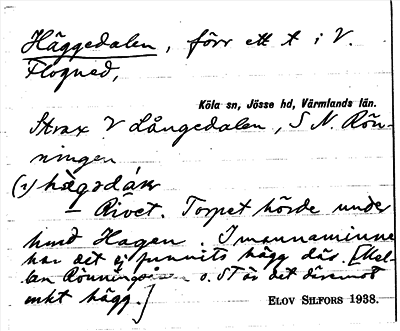 Häggedalen, förr ett t i V.
Flogned,
Köla sn, Jösse hd, Värmlands län.
Strax V Långedalen, S N. Rön-
ningen
– Rivet. Torpet hörde under
hmd Hagen. I mannaminne
har det ej funnits hägg där. [Mel-
lan o. ST är det däremot
mkt hägg.]
ELOV SILFORS 1938.